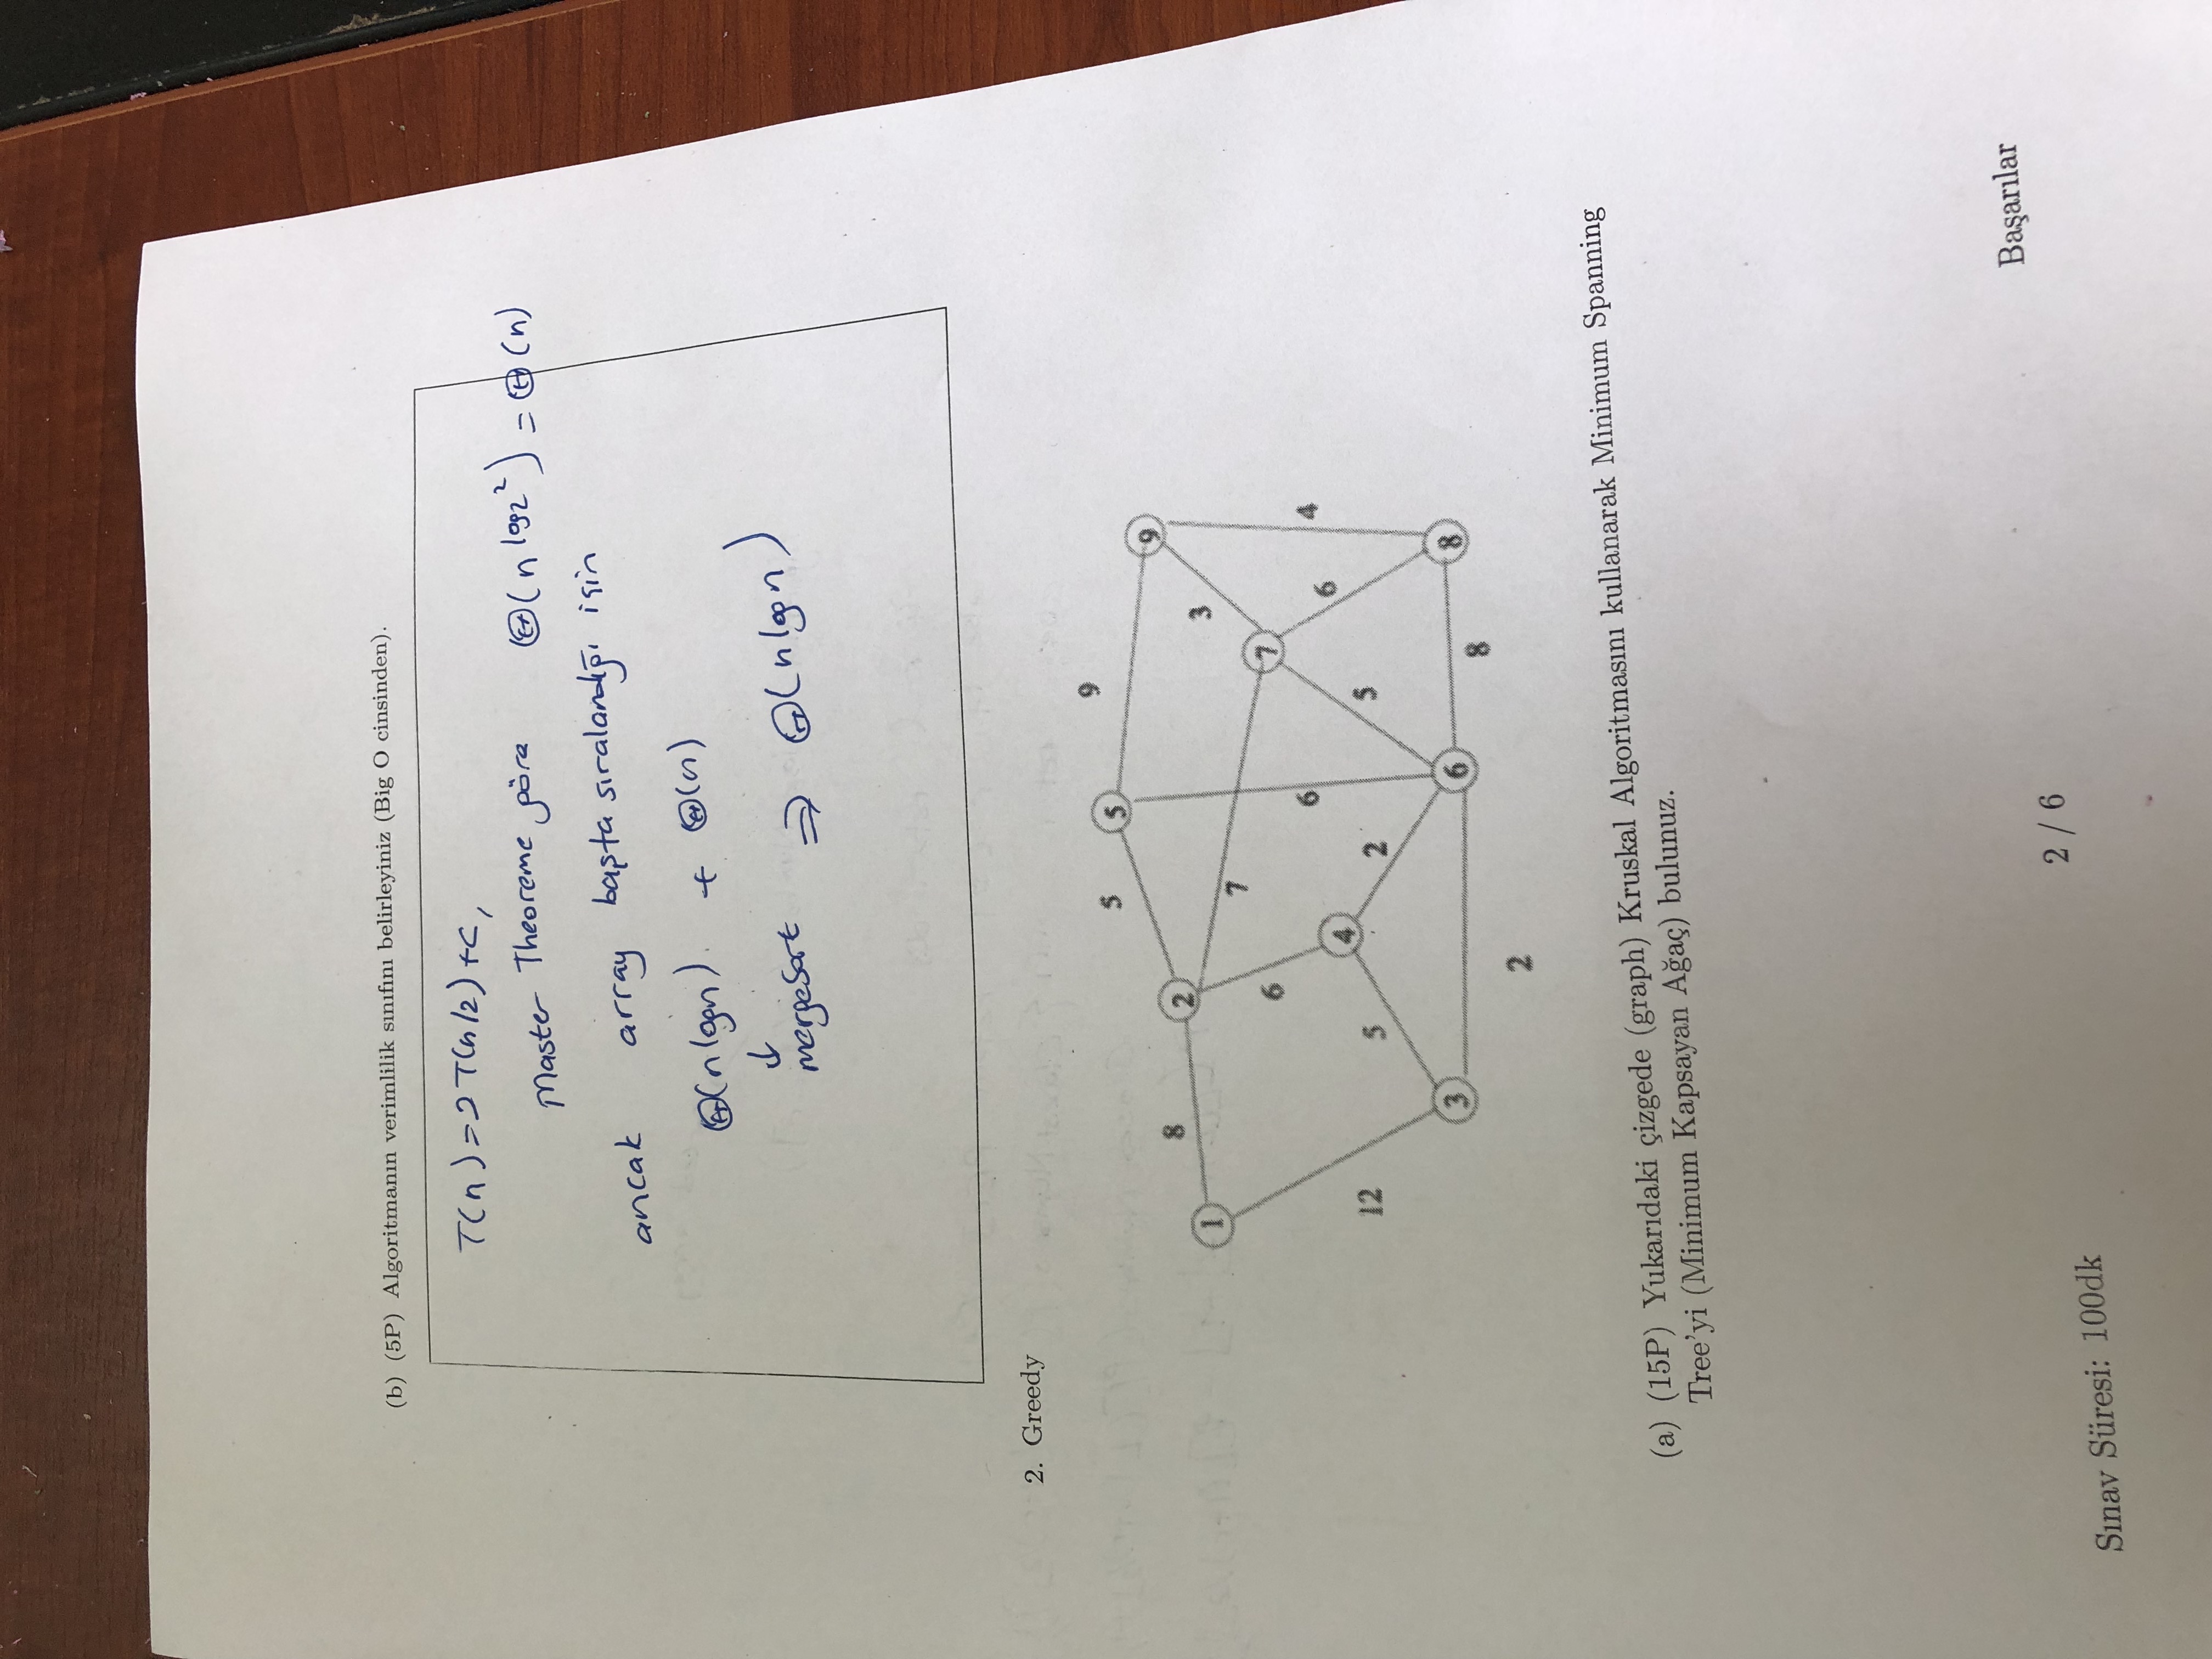 (b) (5P) Algoritmanın verimlilik sınıfını belirleyiniz (Big O cinsinden).
T(n)=2T(n/2)+c,
Master Theoreme göre Θ(n^log₂2) = Θ(n)
ancak array başta sıralandığı için
Θ(nlogn) + Θ(n)
↓
mergeSort ⇒ Θ(nlogn)
2. Greedy
5
9
5
9
8
2
1
3
7
7
6
6
4
6
4
12
5
2
5
3
6
8
8
2
(a) (15P) Yukarıdaki çizgede (graph) Kruskal Algoritmasını kullanarak Minimum Spanning
Tree'yi (Minimum Kapsayan Ağaç) bulunuz.
Başarılar
2 / 6
Sınav Süresi: 100dk